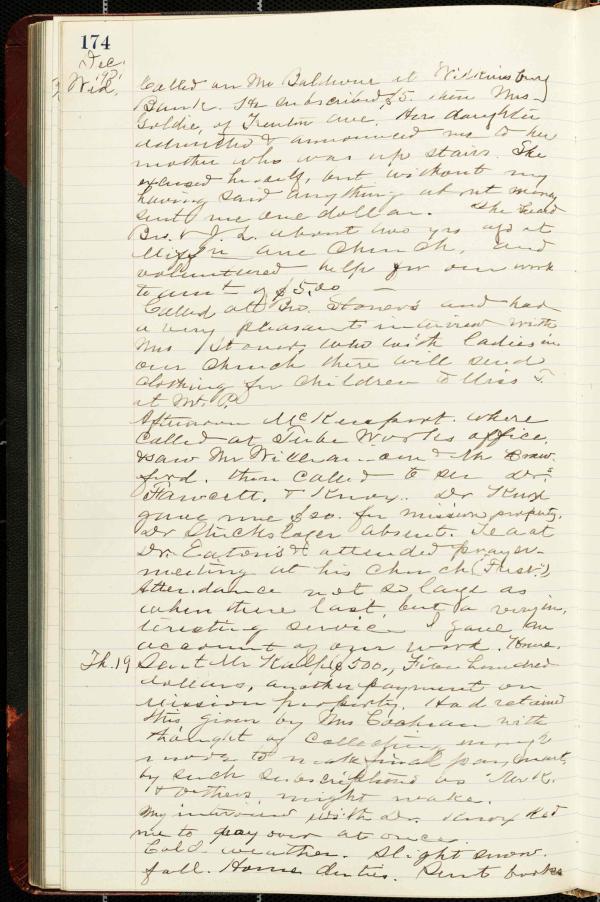 174
Dec.
'97.
Wed. Called on Mr Baldwin at Wilkinsburg
Bank. He subscribed $5. then Mrs
Goldie, of Trenton ave. Her daughter
admitted & announced me to her
mother who was up stairs. She
excused herself, but without my
having said anything about money
sent me one dollar. She heard
Bro. & J. L. about two yrs ago at
Mifflin ave Church, and
volunteered help for our work
to amt of $5.00 —
Called at Bro. Stoner's and had
a very pleasant interview with
Mrs Stoner, who with ladies in
our church there will send
clothing for children to Miss T.
at Mt. P.
Afternoon McKeesport. where
called at Tube Works office,
& saw Mr and Mr Craw-
ford. then called to see Drs
Fawcett, & Knox. Dr Knox
gave me $20. for mission property.
Dr Stickslager absent. Tea at
Dr. Eaton's & attended prayer-
meeting at his church (First.)
Attendance not so large as
when there last, but a very in-
teresting service I gave an
account of our work. Home.
Th. 19 Sent Mr Kulp ($500., Five hundred
dollars, another payment on
Mission property. Had retained
this given by Mrs Cochran with
thought of collecting enough
more to make final payments
by such subscriptions as Mr K.
& others, might make.
My interview with Dr. Knox led
me to pay over at once.
Cold weather. Slight snow-
fall. Home duties. Sent books